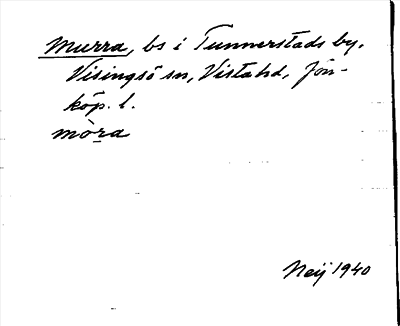 Murra, bs i Tunnerstads by,
Visingsö sn, Vista hd, Jön-
köp. l.
mòra
Neij 1940